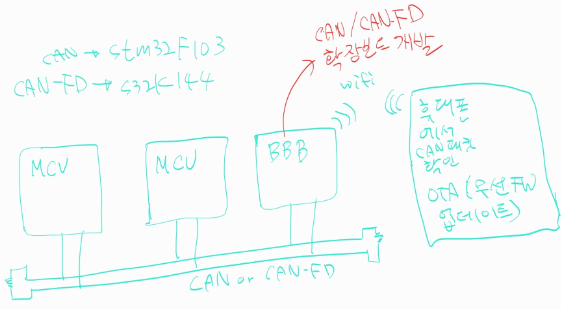 CAN → stm32F103
CAN-FD → S32K144
CAN/CAN-FD
확장보드 개발
wifi
MCU
MCU
BBB
휴대폰
에서
CAN패킷
확인
OTA (무선 FW
업데이트)
CAN or CAN-FD